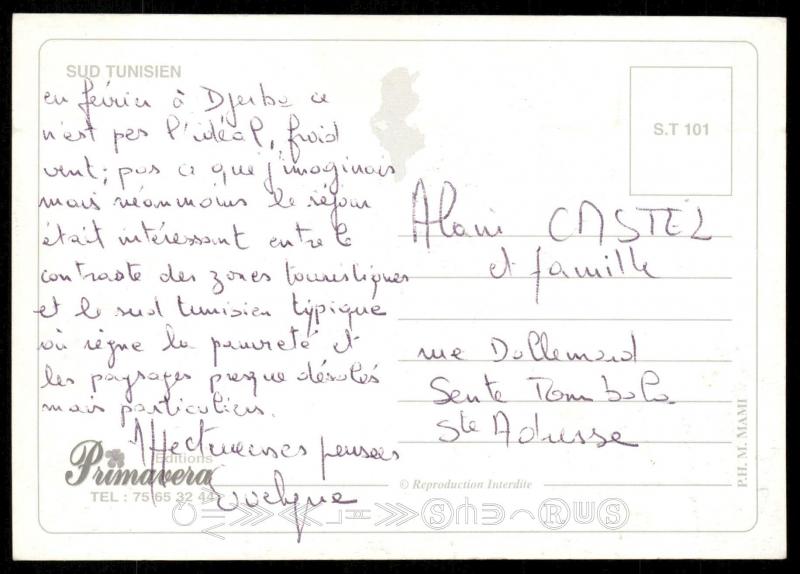 SUD TUNISIEN
en février à Djerba ce
n'est pas l'idéal, froid
vent; pas ce que j'imaginais
mais néanmoins le séjour
était intéressant entre le
contraste des zones touristiques
et le sud tunisien typique
où règne la pauvreté et
les paysages presque désolés
mais particuliers.
Affectueuses pensées
Evelyne
Editions
Primavera
TEL : 75 65 32 44
S.T 101
Alain CASTEL
et famille
rue Dallemand
Sente Tombola
Ste Adresse
© Reproduction Interdite
P.H. M. MAMI